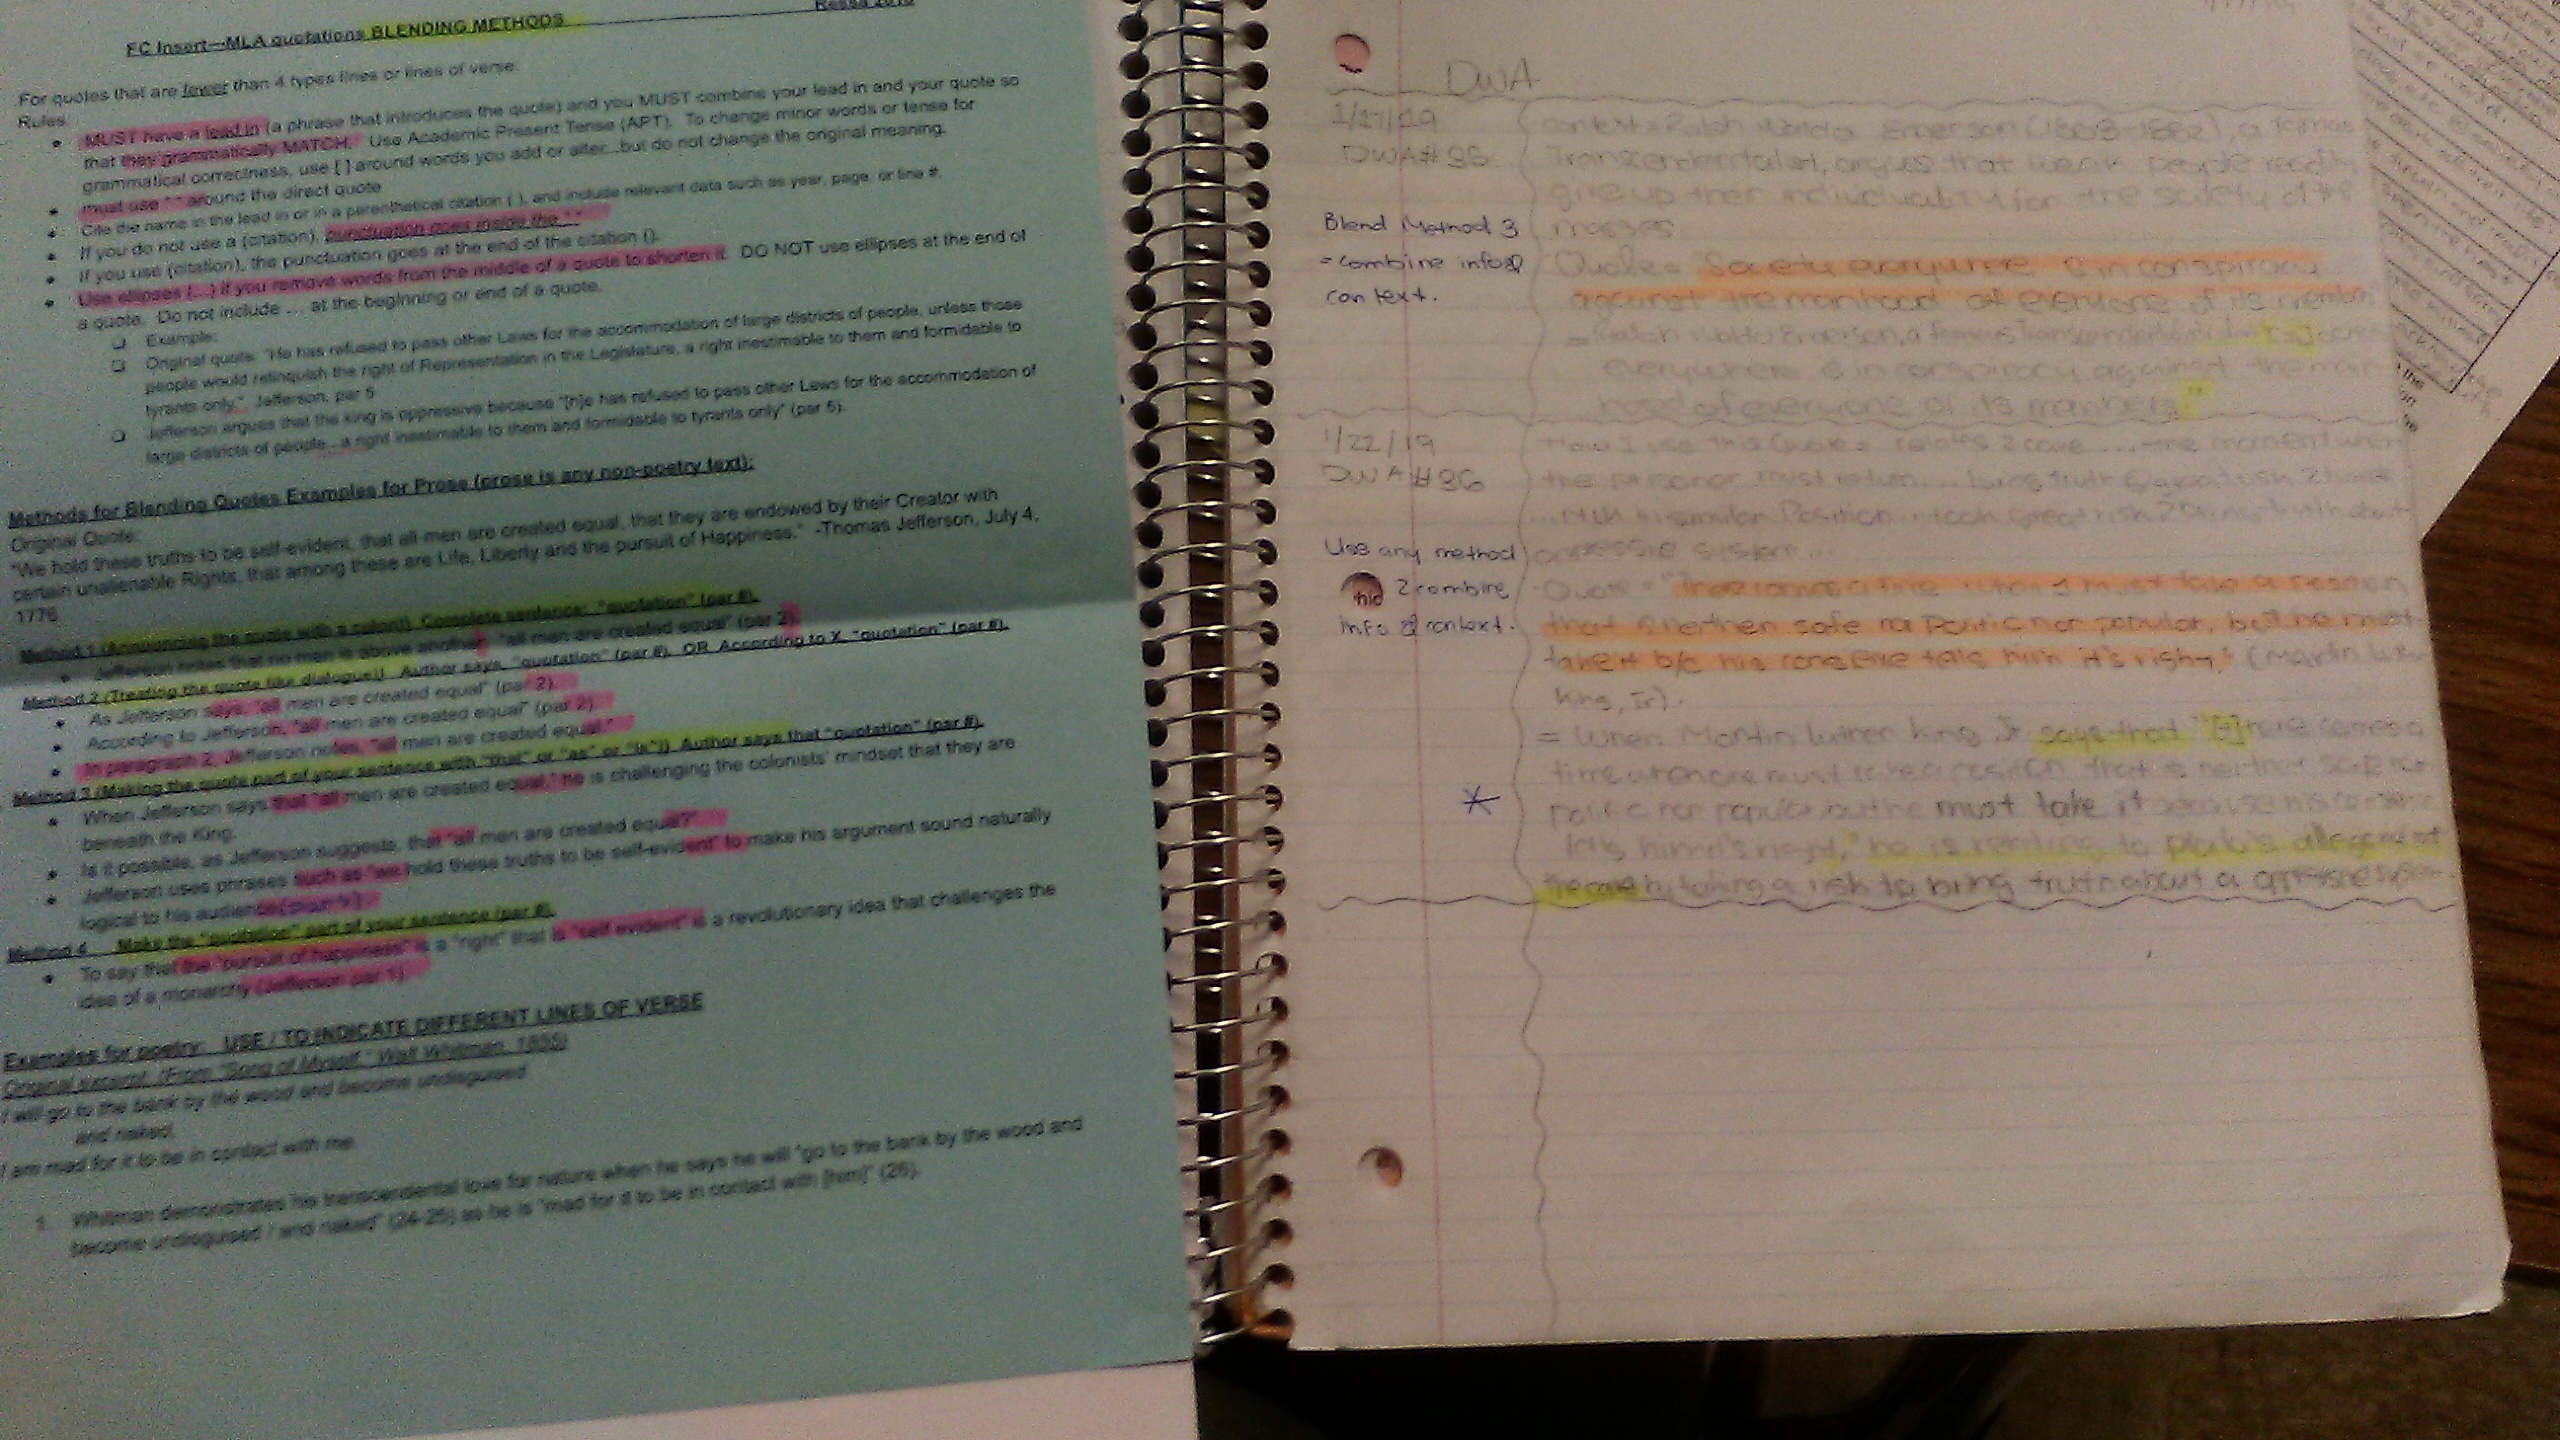 FC Insert—MLA quotations BLENDING METHODS
For quotes that are fewer than 4 types lines or lines of verse.
Rules:
MUST have a lead in (a phrase that introduces the quote) and you MUST combine your lead in and your quote so
that they grammatically MATCH. Use Academic Present Tense (APT). To change minor words or tense for
grammatical correctness, use [ ] around words you add or alter...but do not change the original meaning.
must use " " around the direct quote
Cite the name in the lead in or in a parenthetical citation ( ), and include relevant data such as year, page, or line #.
If you do not use a (citation), punctuation goes inside the " "
If you use (citation), the punctuation goes at the end of the citation ().
Use ellipses (...) if you remove words from the middle of a quote to shorten it. DO NOT use ellipses at the end of
a quote. Do not include ... at the beginning or end of a quote.
Example:
Original quote: "He has refused to pass other Laws for the accommodation of large districts of people, unless those
people would relinquish the right of Representation in the Legislature, a right inestimable to them and formidable to
tyrants only." Jefferson, par 5
Jefferson argues that the king is oppressive because "[h]e has refused to pass other Laws for the accommodation of
large districts of people...a right inestimable to them and formidable to tyrants only" (par 5).
Methods for Blending Quotes Examples for Prose (prose is any non-poetry text):
Original Quote:
"We hold these truths to be self-evident, that all men are created equal, that they are endowed by their Creator with
certain unalienable Rights, that among these are Life, Liberty and the pursuit of Happiness." -Thomas Jefferson, July 4,
1776
Method 1 (Announcing the quote with a colon!) Complete sentence: "quotation" (par #).
Jefferson notes that no man is above another: "all men are created equal" (par 2).
Method 2 (Treating the quote like dialogue!) Author says, "quotation" (par #). OR According to X, "quotation" (par #).
As Jefferson says, "all men are created equal" (par 2).
According to Jefferson, "all men are created equal" (par 2).
In paragraph 2, Jefferson notes, "all men are created equal."
Method 3 (Making the quote part of your sentence with "that" or "as" or "is"!) Author says that "quotation" (par #).
When Jefferson says that "all men are created equal," he is challenging the colonists' mindset that they are
beneath the King.
Is it possible, as Jefferson suggests, that "all men are created equal?"
Jefferson uses phrases such as "we hold these truths to be self-evident" to make his argument sound naturally
logical to his audience
Method 4 Make the "quotation" part of your sentence (par #).
To say that the "pursuit of happiness" is a "right" that is "self evident" is a revolutionary idea that challenges the
idea of a monarchy (Jefferson par 1).
Examples for poetry: USE / TO INDICATE DIFFERENT LINES OF VERSE
Original excerpt: (From "Song of Myself," Walt Whitman, 1855)
I will go to the bank by the wood and become undisguised
and naked,
I am mad for it to be in contact with me.
1. Whitman demonstrates his transcendental love for nature when he says he will "go to the bank by the wood and
become undisguised / and naked" (24-25) as he is "mad for it to be in contact with [him]" (26).
DWA
1/17/19
DWA# 95
Blend Method 3
=combine info &
context.
Ralph Waldo Emerson (1803-1882), a famous
Transcendentalist, argues that weak people readily
give up their individuality for the safety of the
masses
Quote = "Society everywhere is in conspiracy
against the manhood of everyone of its members
= Ralph Waldo Emerson, a famous Transcendentalist
everywhere is in conspiracy against the man
hood of everyone of its members."
1/22/19
DWA#96
Use any method
2 combine
info & context.
How I use this Quote = relates 2 cave ... the moment when
the prisoner must return ... bring truth
MLK in similar Position took great risk 2 bring truth about
oppressive system...
Quote = "There comes a time when 1 must take a position
that is neither safe nor politic nor popular, but he must
take it b/c his conscience tells him it's right," (Martin Luther
King, Jr).
= When Martin Luther King, Jr says that "[t]here comes a
time when one must take a position that is neither safe nor
politic nor popular, but he must take it because his conscience
tells him it's right," he is relating to plato's allegory of
the cave by taking a risk to bring truth about a oppressive system.